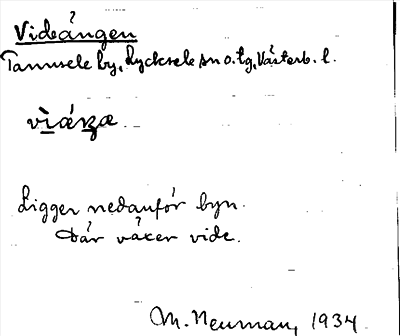 Videängen
Tannsele by, Lycksele sn o. tg, Västerb. l.
vìáŋæ
Ligger nedanför byn.
Där växer vide.
M. Neuman, 1934